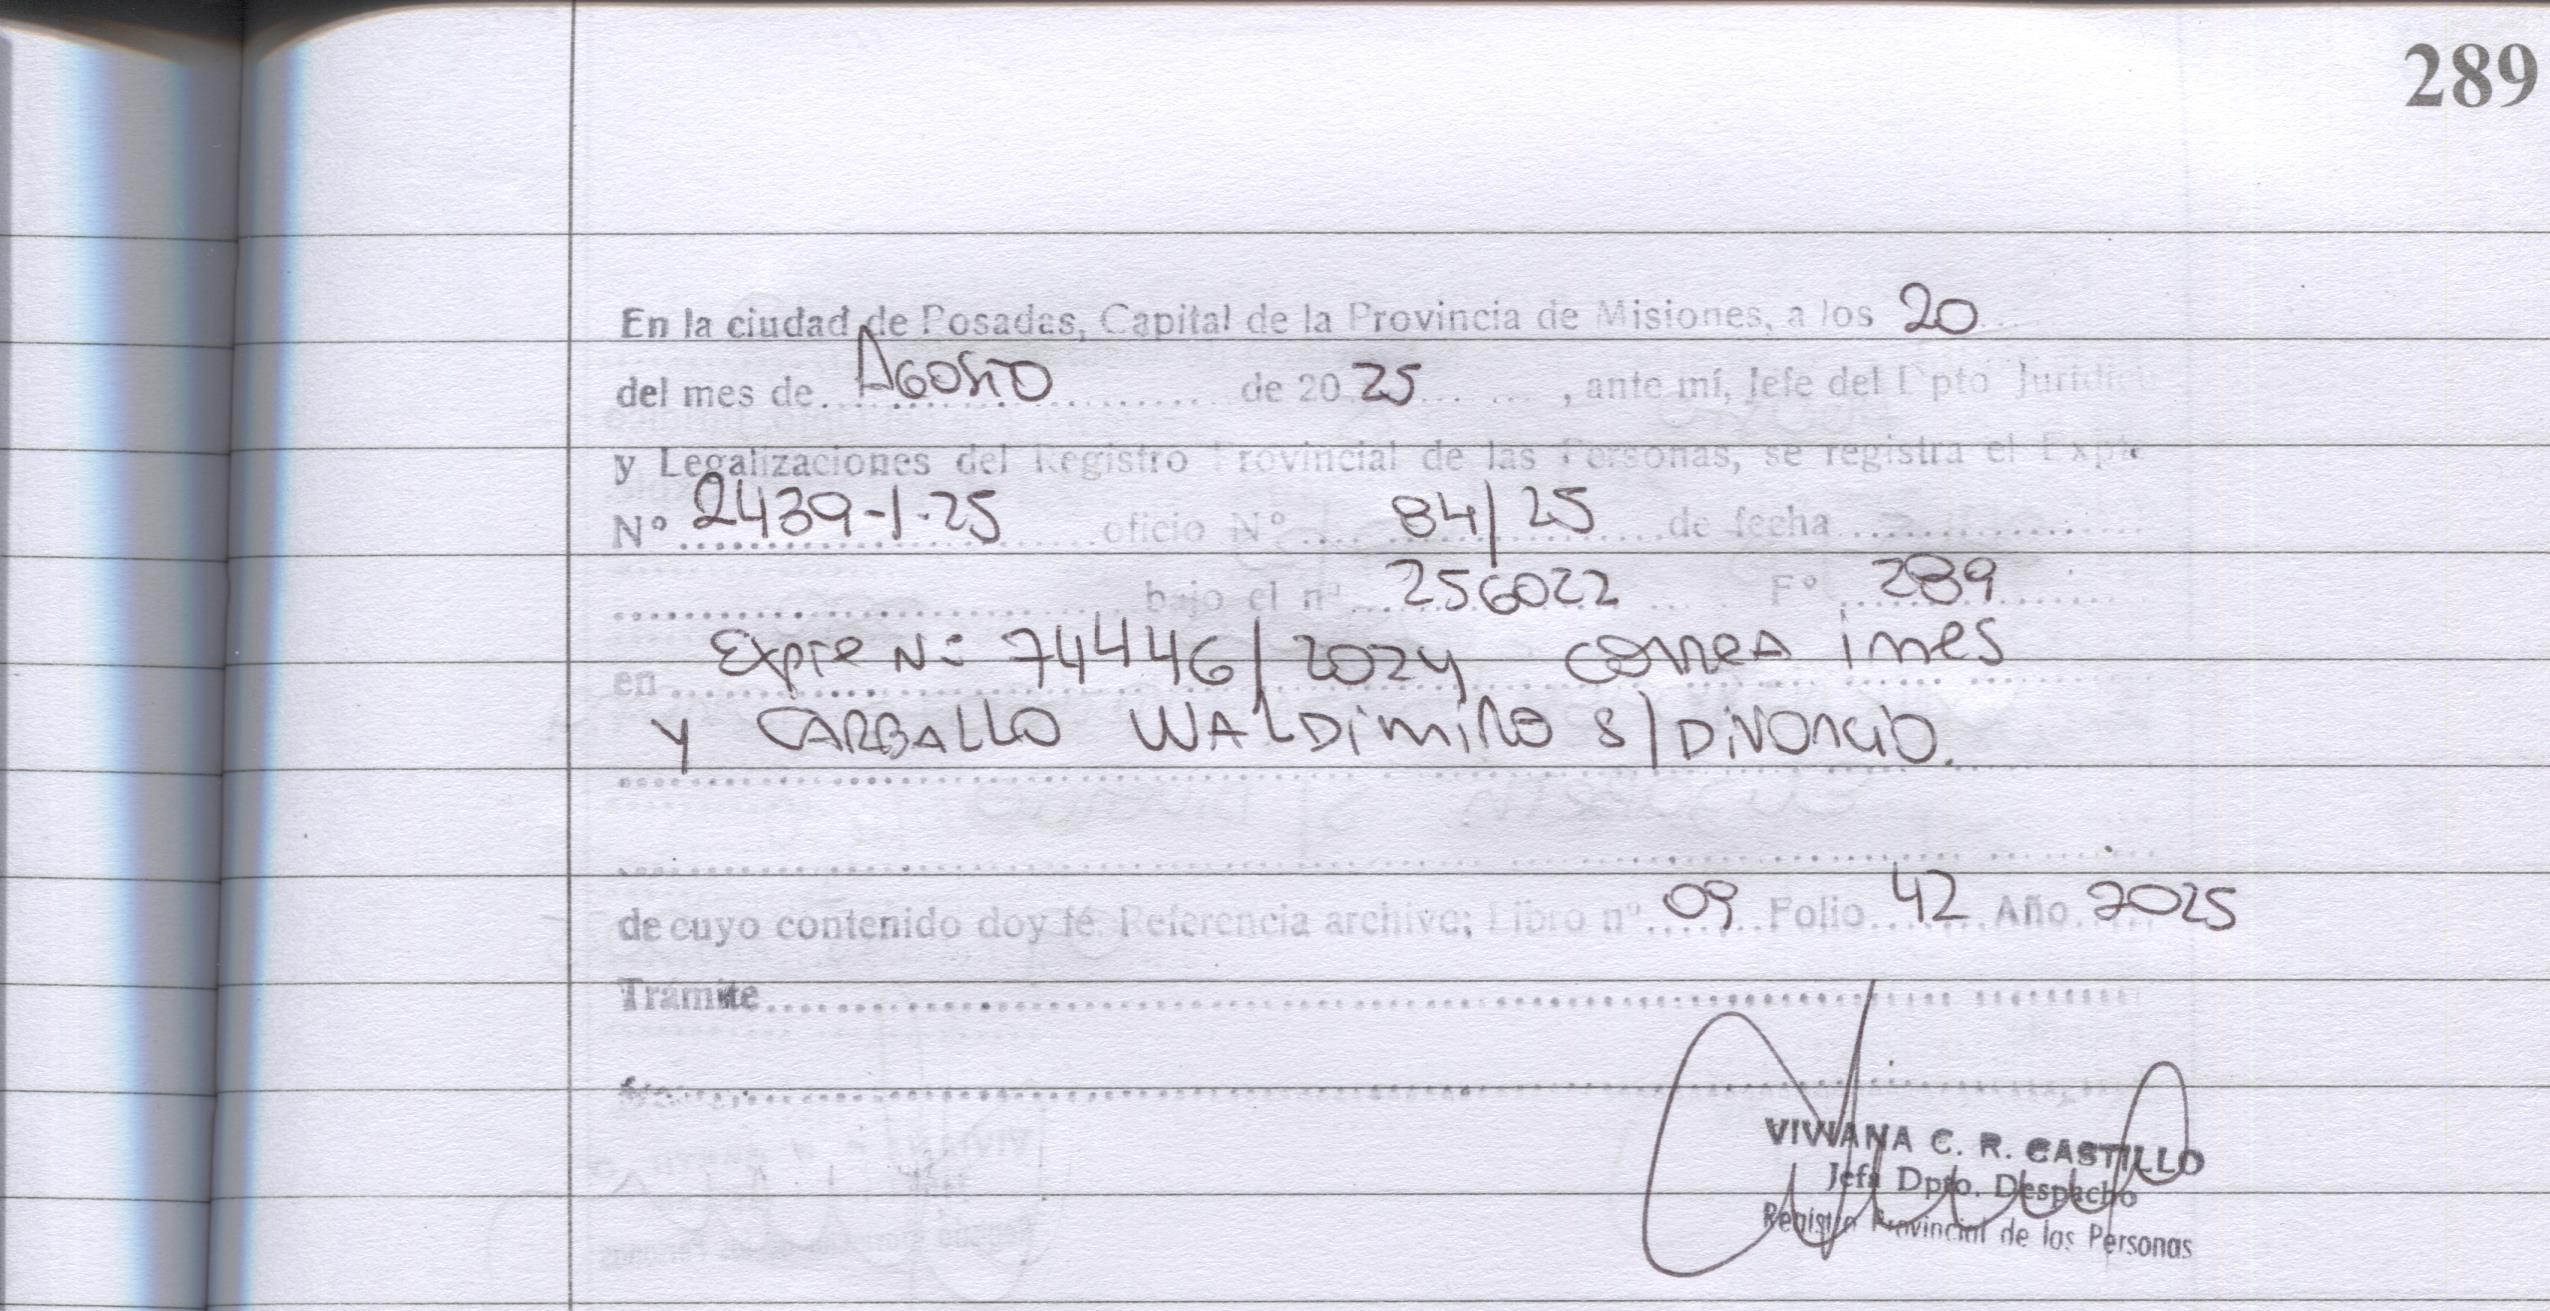 289
En la ciudad de Posadas, Capital de la Provincia de Misiones, a los 20
del mes de Agosto de 20 25 , ante mí, Jefe del Dpto Jurídico
y Legalizaciones del Registro Provincial de las Personas, se registra el Expte
Nº 2439-1-25 oficio Nº 84/25 de fecha
bajo el nº 256022 Fº 289
en Expte Nº 74446/2024 CORREA iNES
y CARBALLO WALDiMiRO S/DiVORCiO.
de cuyo contenido doy fé. Referencia archivo; Libro nº 09 Folio 42 Año 2025
Trámite
VIVIANA C. R. CASTILLO
Jefa Dpto. Despacho
Registro Provincial de las Personas